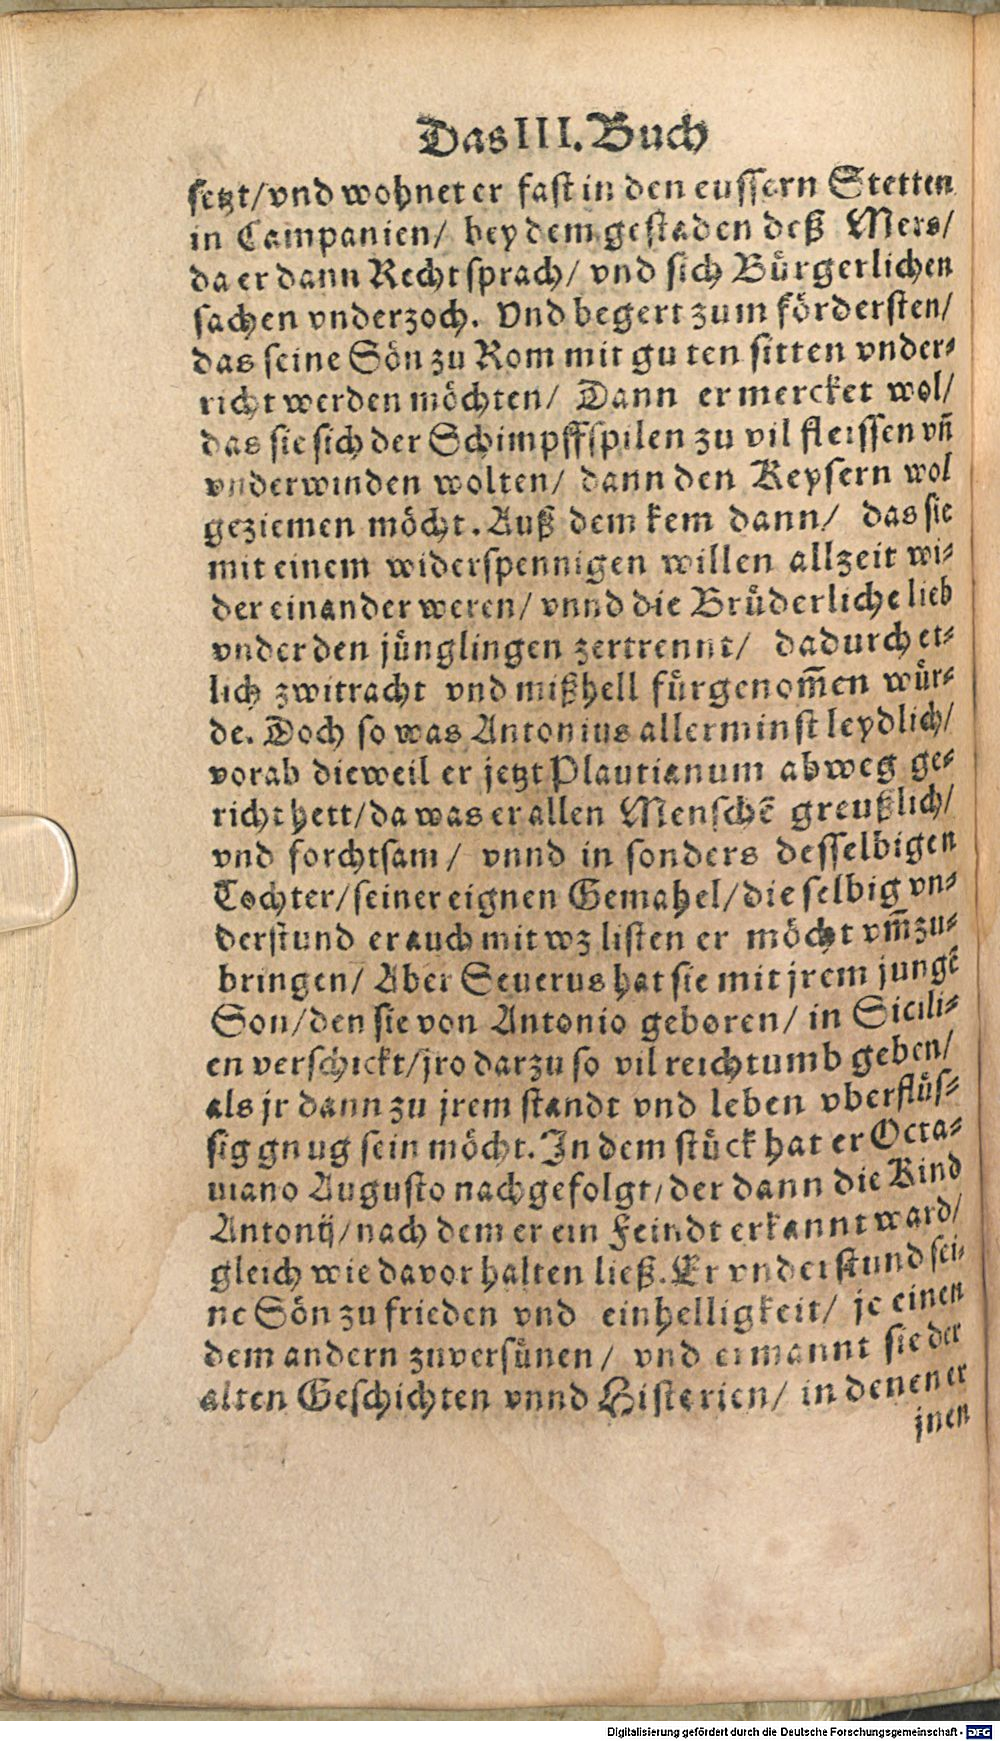 Das III. Buch
setzt/vnd wohnet er fast in den eussern Stetten
in Campanien/ bey dem gestaden deß Mers/
da er dann Recht sprach/ vnd sich Bürgerlichen
sachen vnderzoch. Vnd begert zum fördersten/
das seine Sön zu Rom mit guten sitten vnder-
richt werden möchten/ Dann er mercket wol/
das sie sich der Schimpffspilen zu vil fleissen vñ
vnderwinden wolten/ dann den Keysern wol
geziemen möcht. Auß dem kem dann/ das sie
mit einem widerspennigen willen allzeit wi-
der einander weren/ vnnd die Brüderliche lieb
vnder den jünglingen zertrennt/ dadurch et-
lich zwitracht vnd mißhell fürgenom̃en wür-
de. Doch so was Antonius allerminst leydlich/
vorab dieweil er jetzt Plautianum abweg ge-
richt hett/da was er allen Menschẽ greußlich/
vnd forchtsam/ vnnd in sonders desselbigen
Tochter/seiner eignen Gemahel/die selbig vn-
derstund er auch mit wz listen er möcht vm̃zu-
bringen/ Aber Seuerus hat sie mit jrem jungẽ
Son/den sie von Antonio geboren/ in Sicili-
en verschickt/jro darzu so vil reichtumb geben/
als jr dann zu jrem standt vnd leben vberflüs-
sig gnug sein möcht. In dem stück hat er Octa-
uiano Augusto nachgefolgt/der dann die Kind
Antonij/nach dem er ein Feindt erkannt ward/
gleich wie davor halten ließ. Er vnderstund sei-
ne Sön zu frieden vnd einhelligkeit/ je einen
dem andern zuversünen/ vnd ermannt sie der
alten Geschichten vnnd Historien/ in denen er
jnen
Digitalisierung gefördert durch die Deutsche Forschungsgemeinschaft - DFG